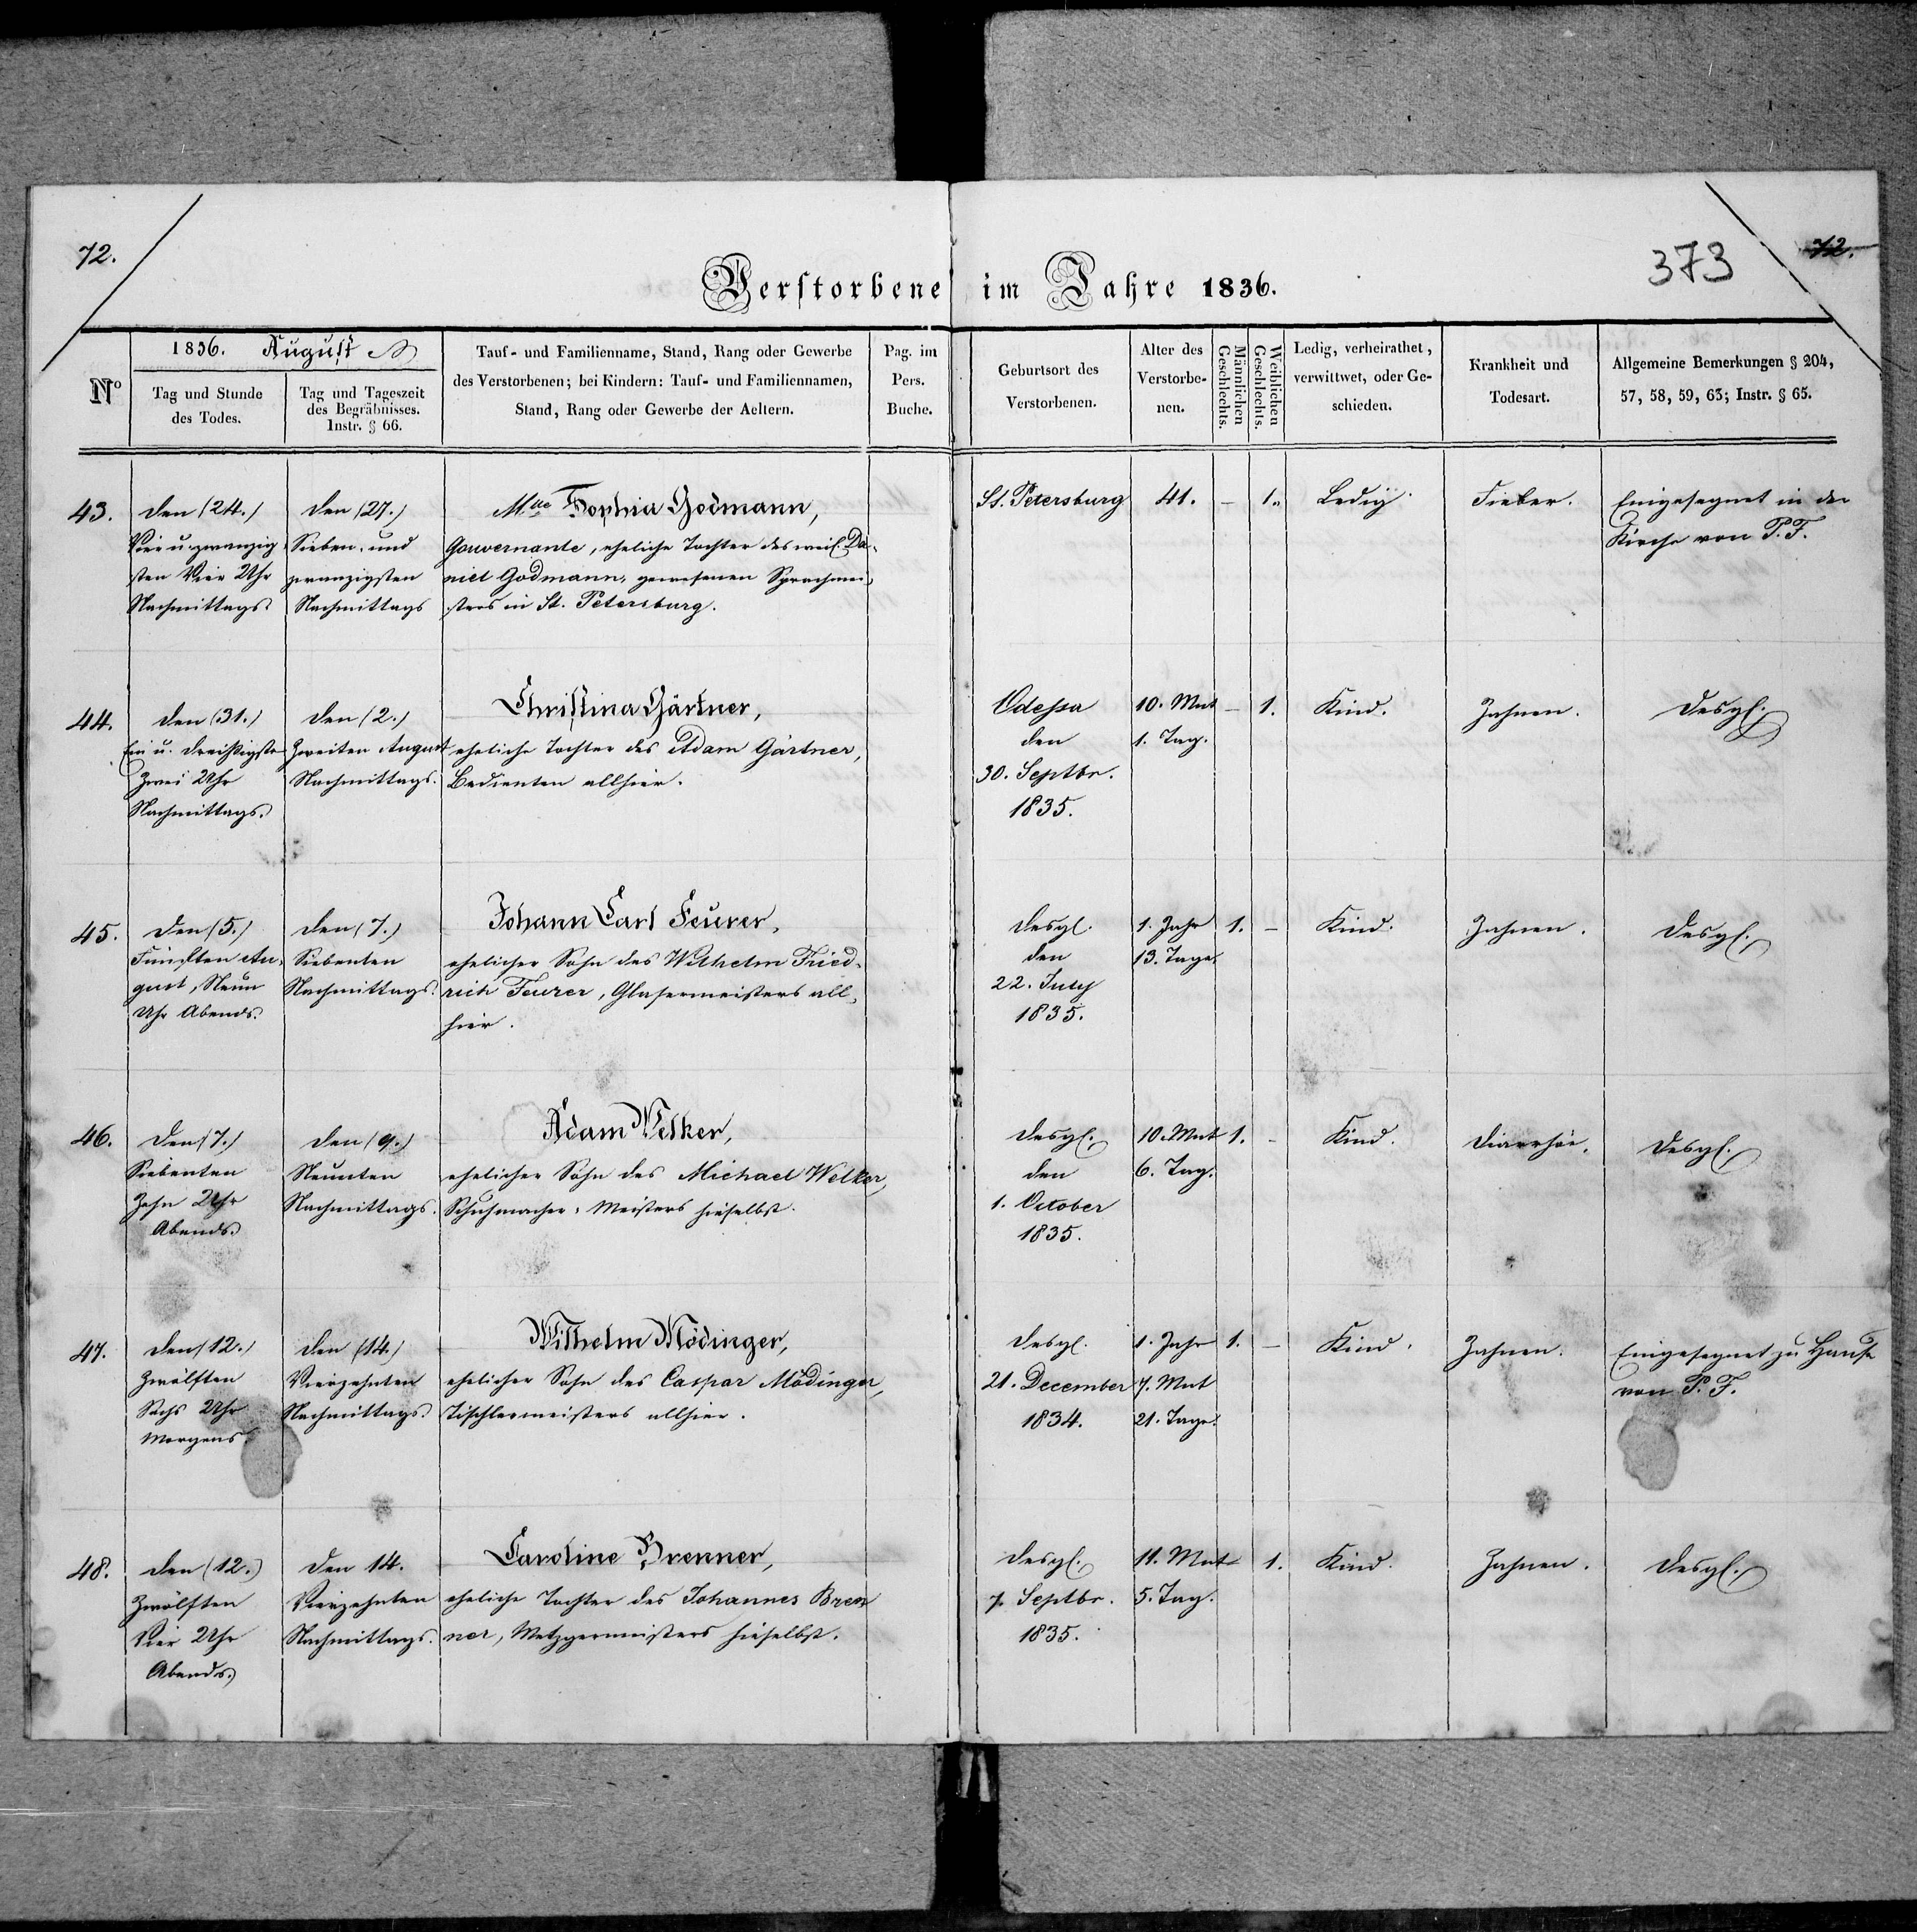 72.
373
72.
Verstorbene im Jahre 1836.
Nº
1836. August
Tag und Stunde
des Todes.
Tag und Tageszeit
des Begräbnisses.
Instr. § 66.
Tauf- und Familienname, Stand, Rang oder Gewerbe
des Verstorbenen; bei Kindern: Tauf- und Familiennamen,
Stand, Rang oder Gewerbe der Aeltern.
Pag. im
Pers.
Buche.
Geburtsort des
Verstorbenen.
Alter des
Verstorbe-
nen.
Männlichen
Geschlechts.
Weiblichen
Geschlechts.
Ledig, verheirathet,
verwittwet, oder Ge-
schieden.
Krankheit und
Todesart.
Allgemeine Bemerkungen § 204,
57, 58, 59, 63; Instr. § 65.
43.
den (24.)
Vier u. zwanzig
sten Vier Uhr
Nachmittags
den (27.)
Sieben- und
zwanzigsten
Nachmittags
Mlle Sophia Godmann,
Gouvernante, eheliche Tochter des weil. Da-
niel Godmann, gewesenen Sprachmei-
sters in St. Petersburg.
St. Petersburg
41.
-
1.
Ledig.
Fieber.
Eingesegnet in der
Kirche von P. F.
44.
den (31.)
Ein u. dreißigste
Zwei Uhr
Nachmittags.
den (2.)
Zweiten August
Nachmittags.
Christina Gärtner,
eheliche Tochter des Adam Gärtner,
Bedienten allhier.
Odessa
den
30. Septbr.
1835.
10. Mnt
1. Tag.
-
1.
Kind.
Zahnen.
Desgl.
45.
den (5.)
Fünften Au-
gust, Neun
Uhr Abends.
den (7.)
Siebenten
Nachmittags.
Johann Carl Feurer,
ehelicher Sohn des Wilhelm Fried-
rich Feurer, Glasermeisters all-
hier.
Desgl.
den
22. July
1835.
1. Jahr
13. Tage.
1.
-
Kind.
Zahnen.
Desgl.
46.
den (7.)
Siebenten
Zehn Uhr
Abends.
den (9.)
Neunten
Nachmittags.
Adam Welker,
ehelicher Sohn des Michael Welker,
Schuhmacher-Meisters hieselbst.
Desgl.
den
1. October
1835.
10. Mnt
6. Tag.
1.
-
Kind.
Diarrhöe.
Desgl.
47.
den (12.)
Zwölften
Sechs Uhr
Morgens.
den (14.)
Vierzehnten
Nachmittags.
Wilhelm Mödinger,
ehelicher Sohn des Caspar Mödinger,
Tischlermeisters allhier.
Desgl.
21. December
1834.
1. Jahr
7. Mnt
21. Tage.
1.
-
Kind.
Zahnen.
Eingesegnet zu Hause
von P. F.
48.
den (12.)
Zwölften
Vier Uhr
Abends.
den 14.
Vierzehnten
Nachmittags.
Caroline Brenner,
eheliche Tochter des Johannes Bren
ner, Metzgermeisters hieselbst.
Desgl.
7. Septbr.
1835.
11. Mnt
5. Tag.
1.
Kind.
Zahnen.
Desgl.